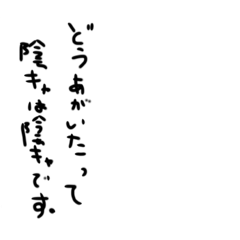 どうあがいたって
陰キャは陰キャです。